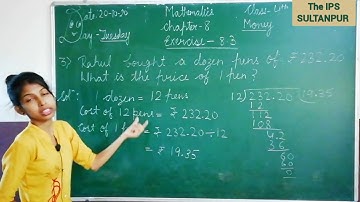 The IPS
SULTANPUR
Date: 20-10-20
Day - Tuesday
Mathematics
Chapter-8
Exercise - 8.3
Class-4th
Money
3) Rahul bought a dozen pens of ₹ 232.20
What is the price of 1 pen?
Sol: 1 dozen = 12 pens
Cost of 12 pens = ₹ 232.20
Cost of 1 = ₹ 232.20 ÷ 12
= ₹ 19.35
12) 232.20 (19.35
12
112
108
42
36
60
60